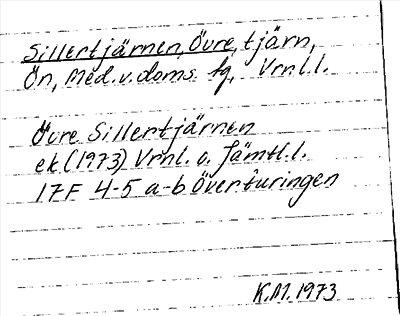 Sillertjärnen, Övre, tjärn,
Ön, Med. v. doms fg, Vrnl.l.
Övre Sillertjärnen
ek (1973) Vrnl. o. Jämtl.l.
17F 4-5 a-b Överturingen
K.M. 1973